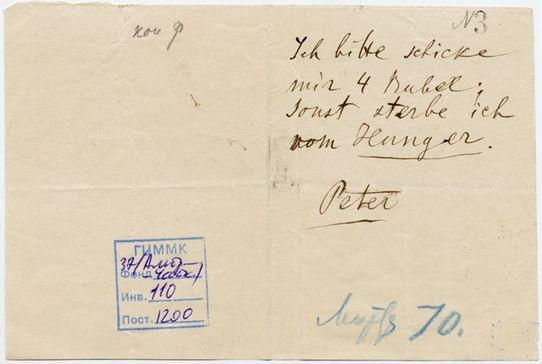 №3
Ich bitte schicke
mir 4 Rubel,
sonst sterbe ich
vom Hunger.
Peter
ГЦММК
Фонд
Инв. 110
Пост. 1200
70.